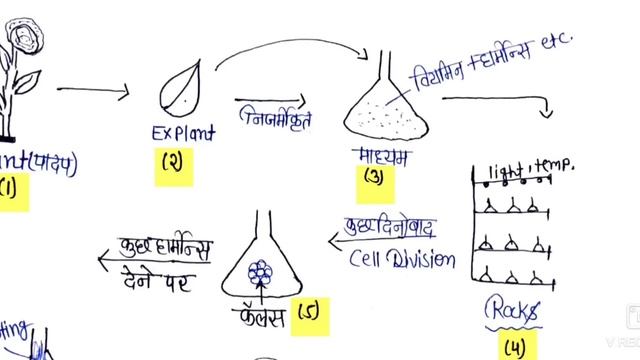 विटामिन + हार्मोन्स etc.
Explant
निजर्मीकृत
ant (पादप)
(1)
(2)
माध्यम
(3)
light, temp.
कुछ हार्मोन्स
देने पर
कुछ दिनो बाद
Cell Division
कैलस
(5)
Rocks
(4)
ting